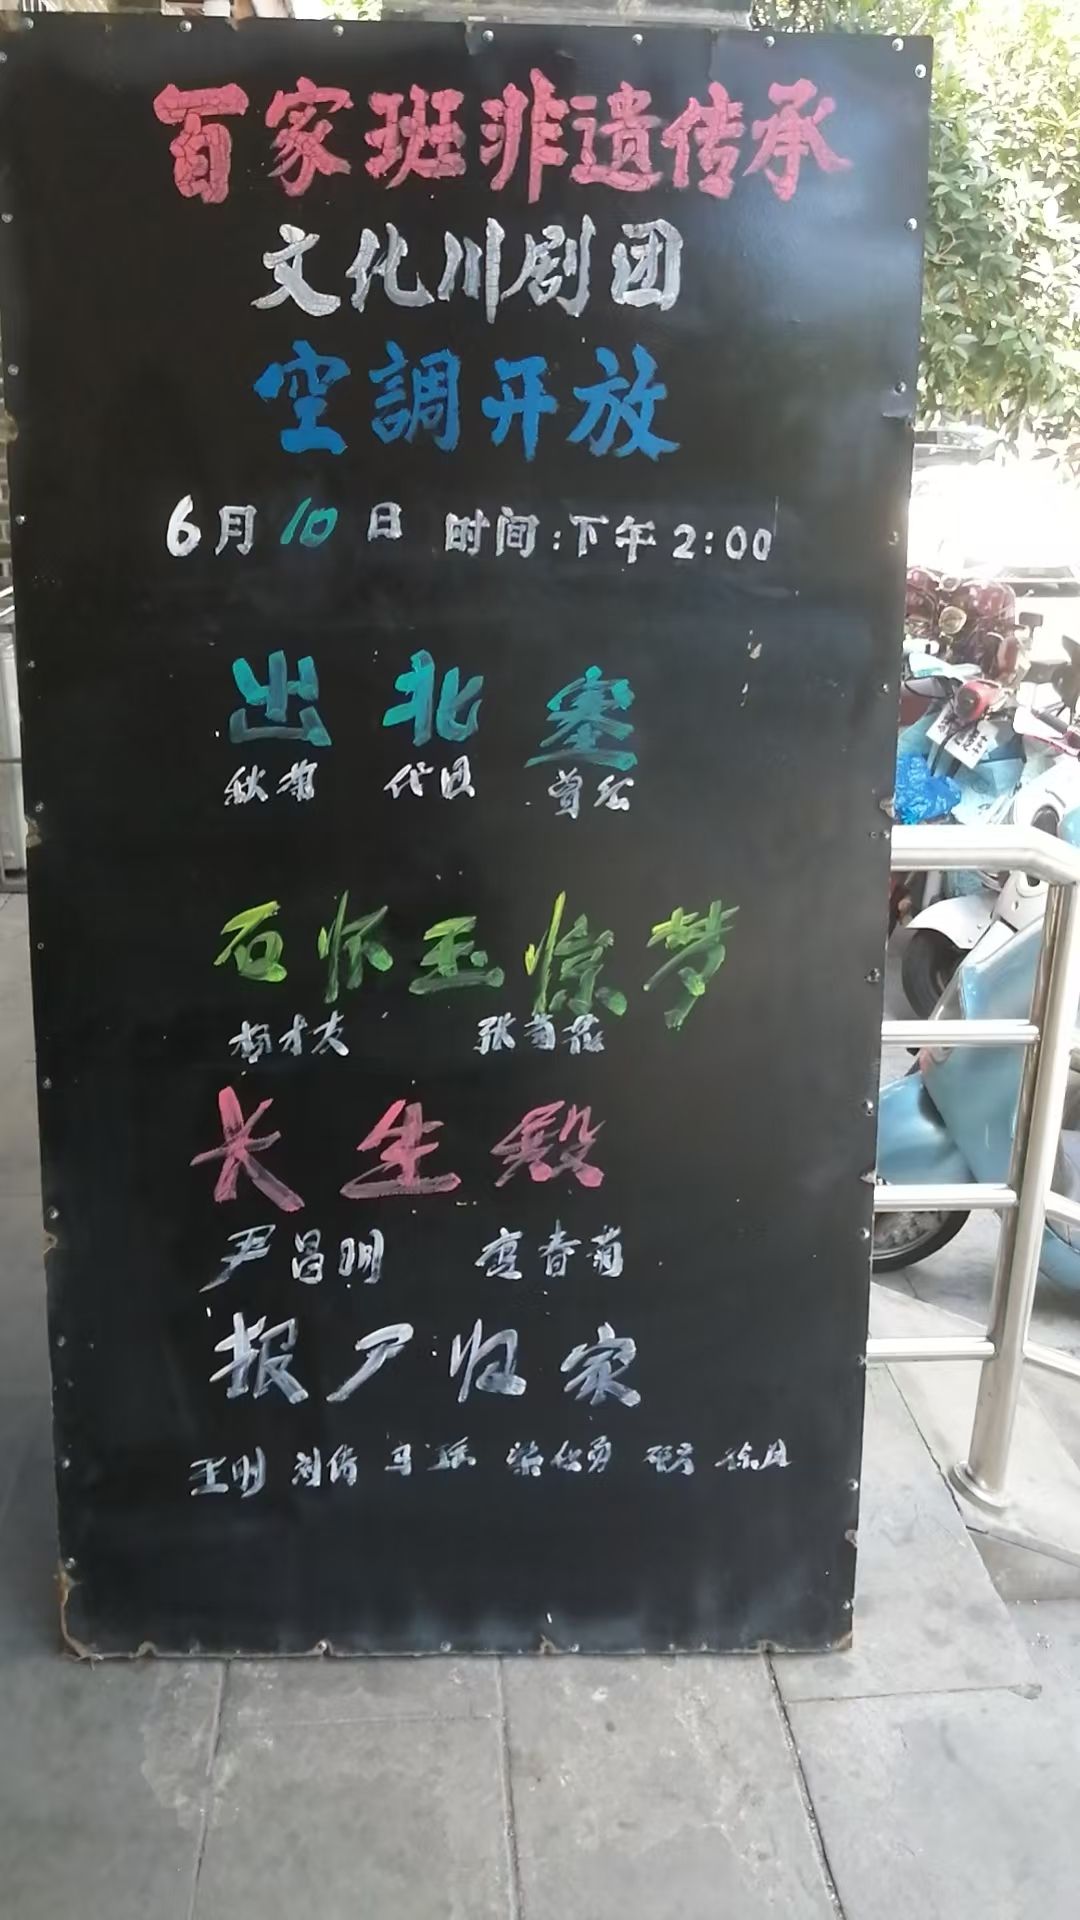 百家班非遗传承
文化川剧团
空調开放
6月10日 时间:下午2:00
出北塞
秋菊 代 曾
石怀玉惊梦
杨才友 张菊花
长生殿
尹昌明 春菊
报尸归家
王明 刘 马瑶 勇 徐